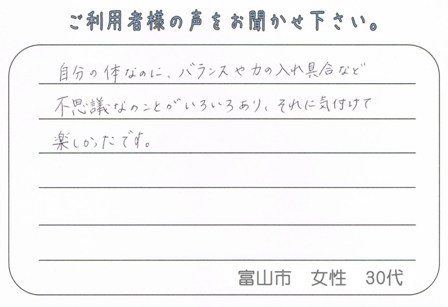 ご利用者様の声をお聞かせ下さい。
自分の体なのに、バランスや力の入れ具合など
不思議なのことがいろいろあり、それに気付けて
楽しかったです。
富山市 女性 30代